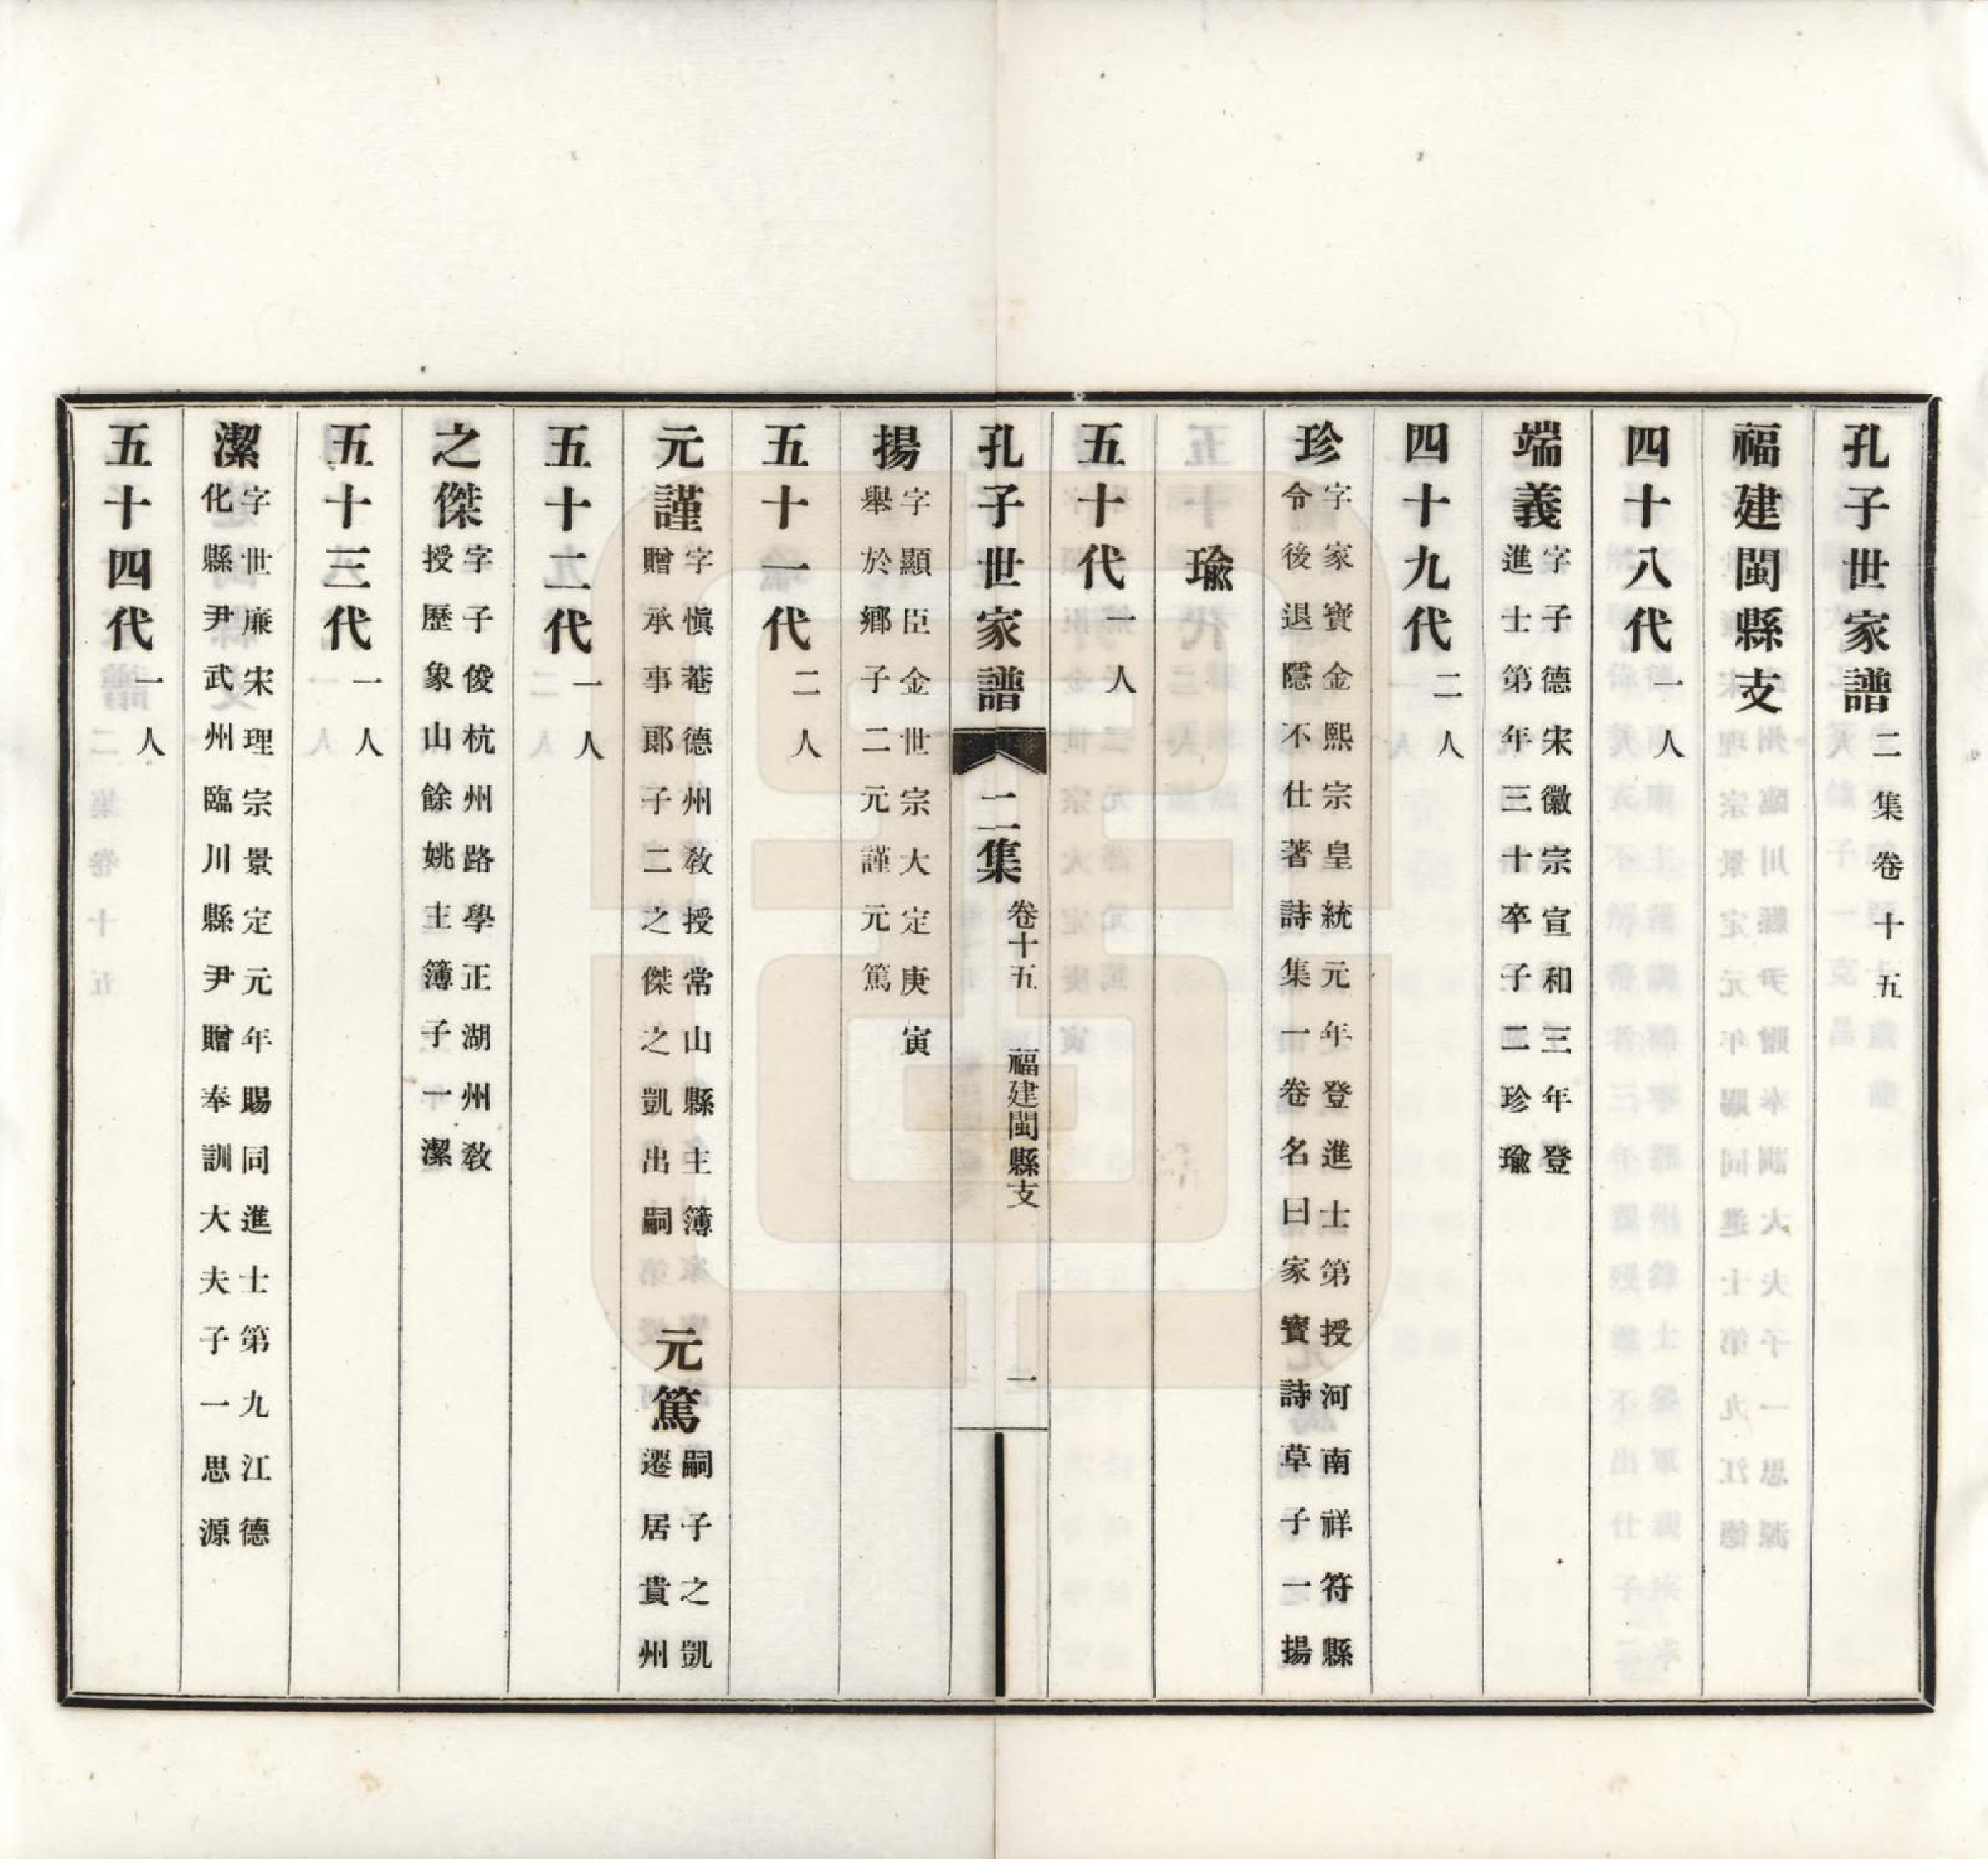 孔子世家譜二集卷十五
福建閩縣支
四十八代一人
端義字子德宋徽宗宣和三年登
進士第年三十卒子二珍瑜
四十九代二人
珍字家寶金熙宗皇統元年登進士第授河南祥符縣
令後退隱不仕著詩集一卷名曰家寶詩草子一揚
瑜
五十代一人
孔子世家譜 二集 卷十五 福建閩縣支 一
揚字顯臣金世宗大定庚寅
舉於鄉子二元謹元篤
五十一代二人
元謹字慎菴德州敎授常山縣主簿
贈承事郎子二之傑之凱出嗣
元篤嗣子之凱
遷居貴州
五十二代一人
之傑字子俊杭州路學正湖州敎
授歷象山餘姚主簿子一潔
五十三代一人
潔字世廉宋理宗景定元年賜同進士第九江德
化縣尹武州臨川縣尹贈奉訓大夫子一思源
五十四代一人